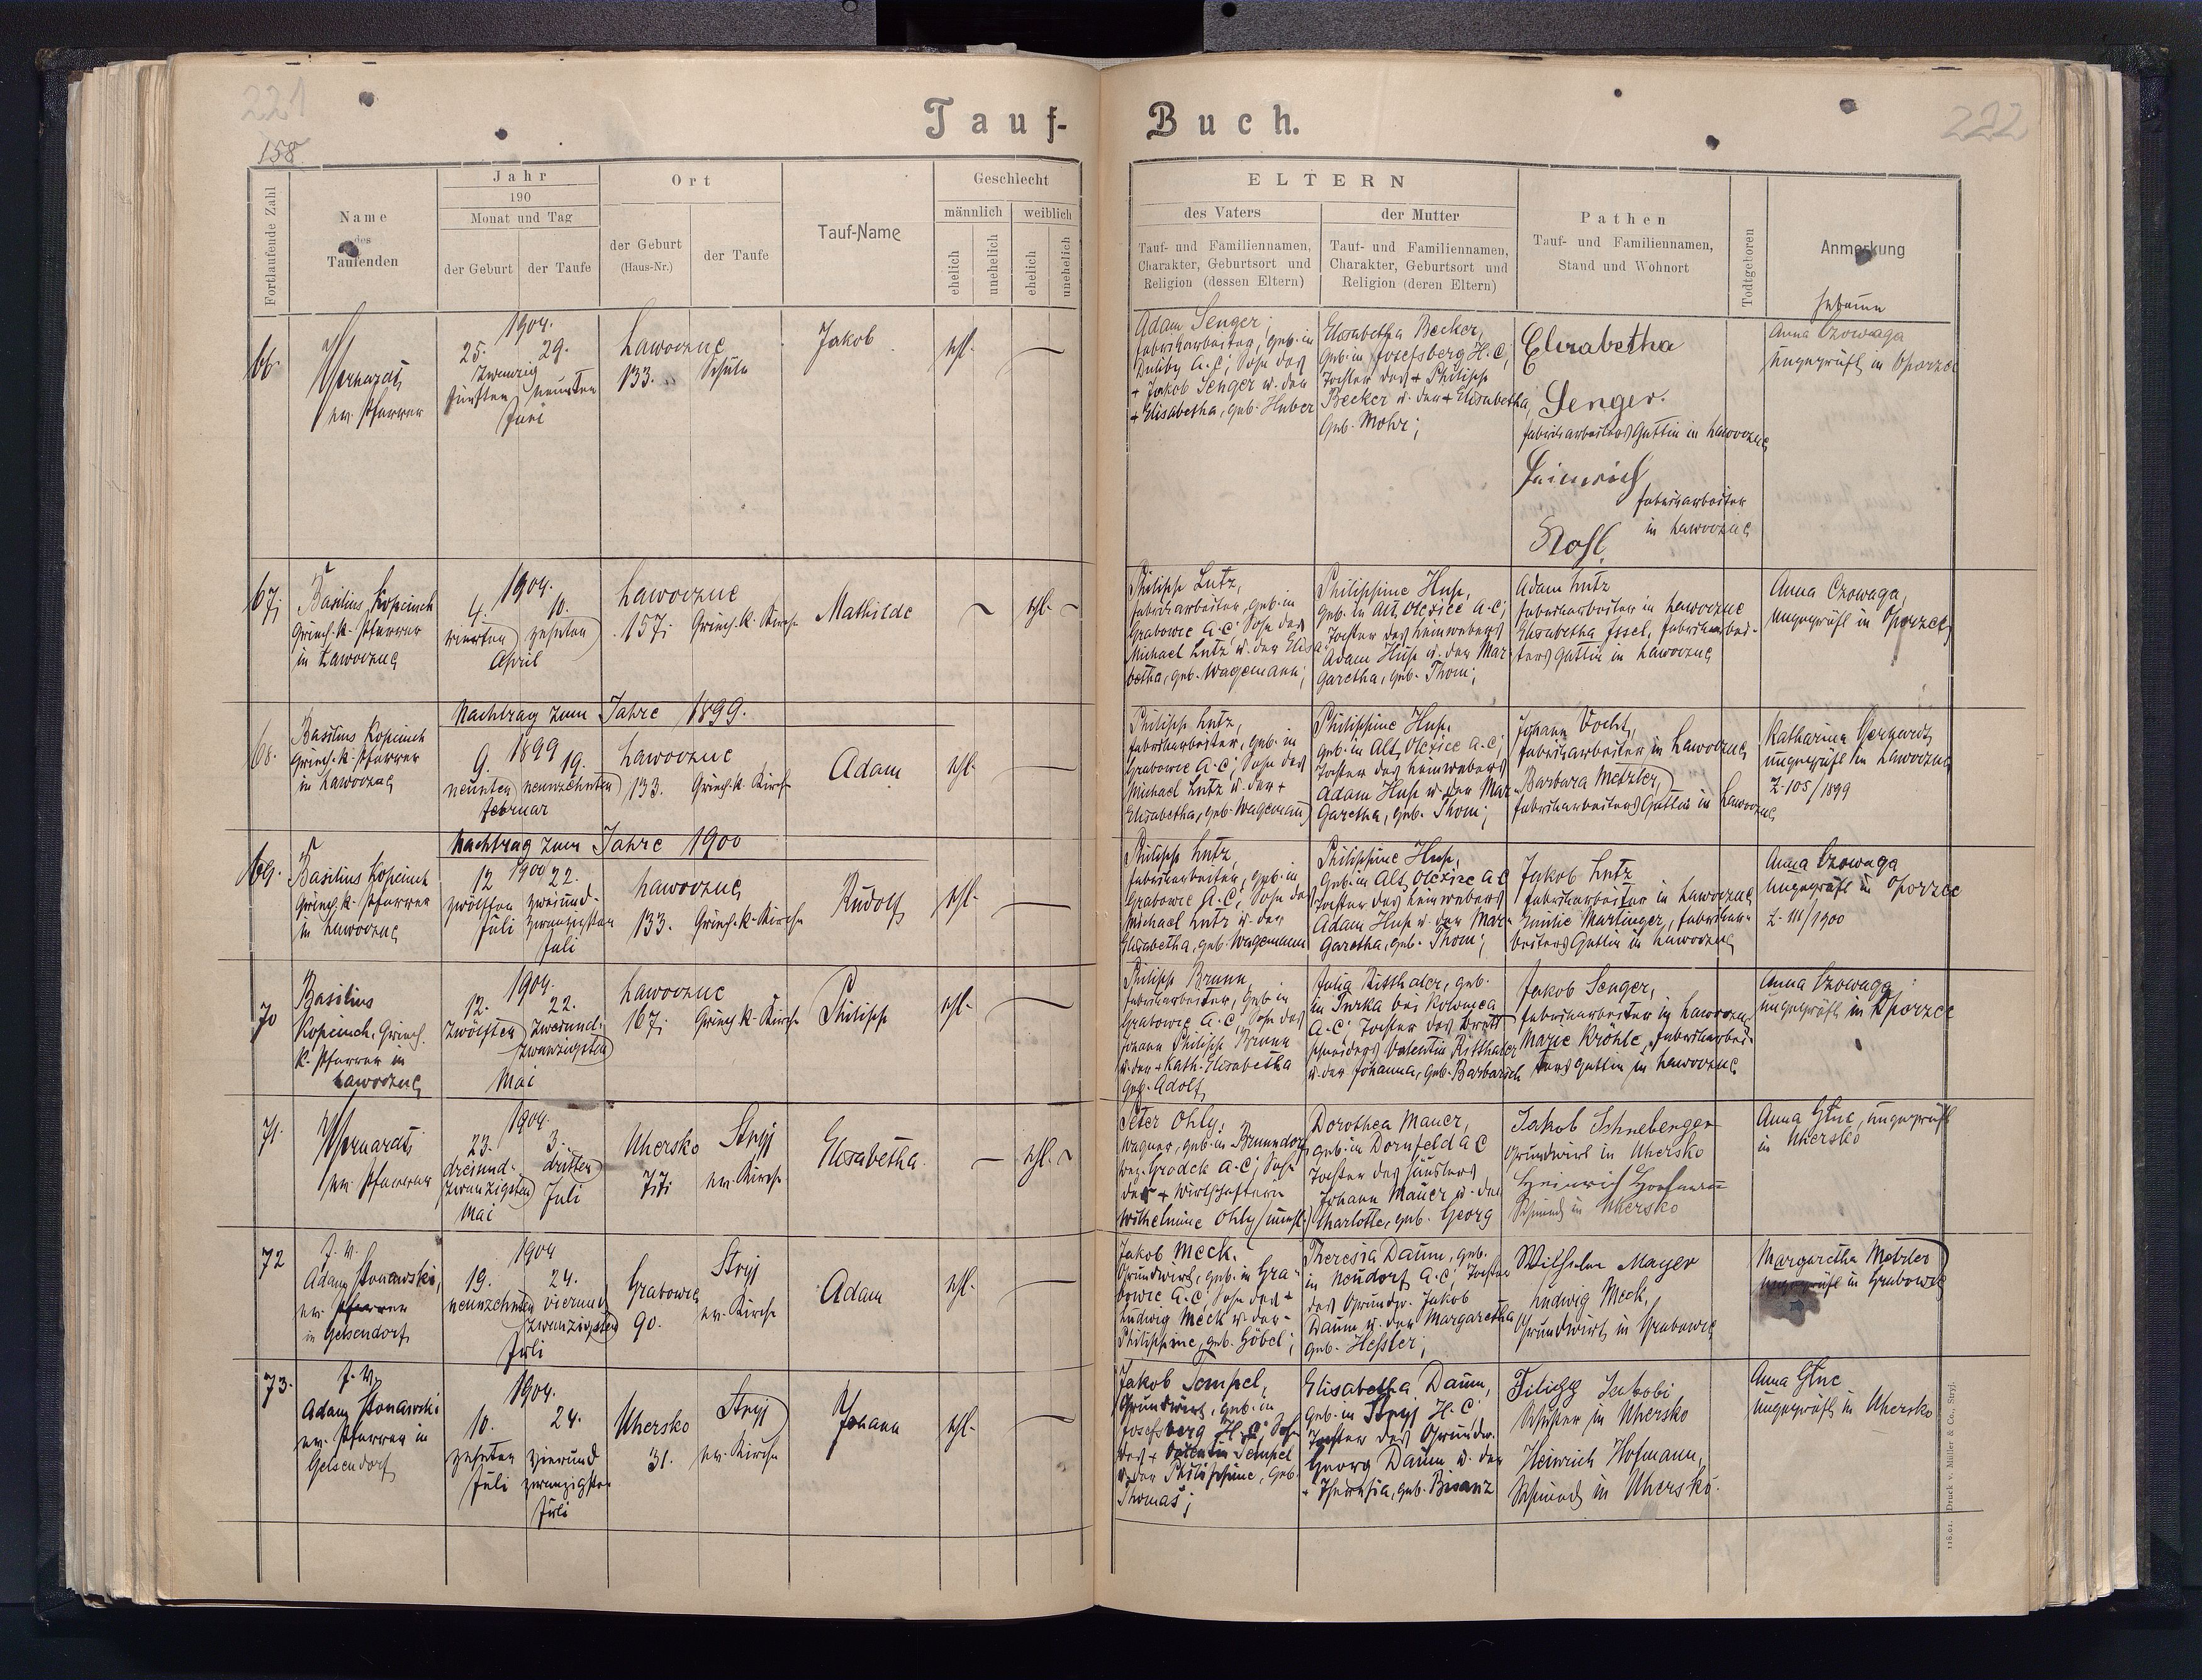 221
158
Tauf-
Buch.
222
Fortlaufende Zahl
Name
des
Taufenden
Jahr
190
Monat und Tag
der Geburt
der Taufe
Ort
der Geburt
(Haus-Nr.)
der Taufe
Tauf-Name
Geschlecht
männlich
weiblich
ehelich
unehelich
ehelich
unehelich
ELTERN
des Vaters
Tauf- und Familiennamen,
Charakter, Geburtsort und
Religion (dessen Eltern)
der Mutter
Tauf- und Familiennamen,
Charakter, Geburtsort und
Religion (deren Eltern)
Pathen
Tauf- und Familiennamen,
Stand und Wohnort
Todtgeboren
Anmerkung
Hebamme
66.
ev. Pfarrer
1904.
25. 29.
zwanzig
fünften neunten
Juni
Lawoczne
133.
Schule
Jakob
ehl.
Adam Senger;
Fabriksarbeiter, geb. in
Duliby A.C; Sohn des
+ Jakob Senger u. der
+ Elisabetha, geb. Huber
Elisabetha Becker,
geb. in Josefsberg H.C;
Tochter des + Philipp
Becker u. der + Elisabetha,
geb. Mohr;
Elisabetha
Senger.
Fabriksarbeiters Gattin in Lawoczne
Heinrich
Fabriksarbeiter
in Lawoczne
Anna Czowaga
ungeprüft in Oporzec
67;
Basilius Kopciuch
Griech.-k. Pfarrer
in Lawoczne
1904.
4. 10.
vierten zehnten
April
Lawoczne
157;
Griech.-k. Kirche
Mathilde
ehl.
Philipp Lutz,
Fabriksarbeiter, geb. in
Grabowce A.C; Sohn des
Michael Lutz u. der Elisa-
betha, geb. Wagemann;
Philippine Hup,
geb. in Alt Oleksice A.C;
Tochter des Leinwebers
Adam Hup u. der Mar-
garetha, geb. Thom;
Adam Lutz
Fabriksarbeiter in Lawoczne
Elisabetha Issel, Fabriksarbei-
ters Gattin in Lawoczne
Anna Czowaga,
ungeprüft in Oporzec
Nachtrag zum Jahre 1899.
68.
Basilius Kopciuch
Griech.-k. Pfarrer
in Lawoczne
1899
9. 19.
neunten neunzehnten
Februar
Lawoczne
133.
Griech.-k. Kirche
Adam
ehl.
Philipp Lutz,
Fabriksarbeiter, geb. in
Grabowce A.C; Sohn des
Michael Lutz u. der +
Elisabetha, geb. Wagemann
Philippine Hup,
geb. in Alt Oleksice A.C;
Tochter des Leinwebers
Adam Hup u. der Mar-
garetha, geb. Thom;
Johann Vocht,
Fabriksarbeiter in Lawoczne
Barbara Metzler,
Fabriksarbeiters Gattin in Lawoczne
Katharina Gerhardt,
ungeprüft in Lawoczne
Z. 105/1899
Nachtrag zum Jahre 1900
69.
Basilius Kopciuch
Griech.-k. Pfarrer
in Lawoczne
1900
12 22.
zwölften zweiund-
Juli zwanzigsten
Juli
Lawoczne
133.
Griech.-k. Kirche
Rudolf
ehl.
Philipp Lutz,
Fabriksarbeiter, geb. in
Grabowce A.C; Sohn des
Michael Lutz u. der
Elisabetha, geb. Wagemann
Philippine Hup,
geb. in Alt Oleksice A.C
Tochter des Leinwebers
Adam Hup u. der Mar-
garetha, geb. Thom;
Jakob Lutz
Fabriksarbeiter in Lawoczne
Emilie Martinger, Fabriksar-
beiters Gattin in Lawoczne
Anna Czowaga
ungeprüft in Oporzec
Z. 111/1900
70
Basilius
Kopciuch, Griech.
k. Pfarrer in
Lawoczne
1904.
12. 22.
zwölften zweiund-
zwanzigsten
Mai
Lawoczne
167;
Griech. k. Kirche
Philipp
ehl.
Philipp Brunn,
Fabriksarbeiter, geb. in
Grabowce A.C; Sohn des
Johann Philipp Brunn
u. der + Kath. Elisabetha
geb. Adolf
Julia Ritthaler, geb.
in Turka bei Kolomea
A.C; Tochter des Brett-
schneiders Valentin Ritthaler
u. der Johanna, geb. Barbarich
Jakob Senger,
Fabriksarbeiter in Lawoczne
Marie Kröhle, Fabriksarbei-
ters Gattin in Lawoczne
Anna Czowaga
ungeprüft in Oporzec
71.
ev. Pfarrer
1904.
23. 3.
dreiund- dritten
zwanzigsten Juli
Mai
Uhersko
77;
Stryj
ev. Kirche
Elisabetha
ehl.
Peter Ohly,
Wagner, geb. in Brunndorf
bez. Grodek A.C; Sohn
der + Wirtschafterin
Wilhelmine Ohly
Dorothea Mauer,
geb. in Dornfeld A.C
Tochter des Häuslers
Johann Mauer u. der
Charlotte, geb. Georg
Jakob Schneberger
Grundwirt in Uhersko
Heinrich Hofmann
Schmied in Uhersko
Anna Gluc, ungeprüft
in Uhersko
72
J. V.
Adam Stonawski,
ev. Pfarrer
in Gelsendorf
1904
19. 24.
neunzehnten vierund
zwanzigsten
Juli
Grabowce
90.
Stryj
ev. Kirche
Adam
ehl.
Jakob Meck,
Grundwirt, geb. in Gra-
bowce A.C; Sohn des +
Ludwig Meck u. der
Philippine, geb. Göbel;
Theresia Daum, geb.
in Neudorf A.C; Tochter
des Grundw. Jakob
Daum u. der Margaretha
geb. Heßler;
Wilhelm Mayer
Ludwig Meck,
Grundwirt in Grabowce
Margaretha Metzler
ungeprüft in Grabowce
73.
J. V.
Adam Stonawski
ev. Pfarrer in
Gelsendorf
1904.
10. 24.
zehnten vierund
Juli zwanzigsten
Juli
Uhersko
31.
Stryj
ev. Kirche
Johann
ehl.
Jakob Sempel,
Grundwirt, geb. in
Josefsberg H.C; Sohn
des + Valentin Sempel
u. der Philippine, geb.
Thomas;
Elisabetha Daum,
geb. in Stryj H.C
Tochter des Grundw.
Georg Daum u. der
+ Theresia, geb. Bisanz
Filipp Jakobi
Schuster in Uhersko
Heinrich Hofmann,
Schmied in Uhersko.
Anna Gluc
ungeprüft in Uhersko
118.01. Druck v. Müller & Co., Stryj.